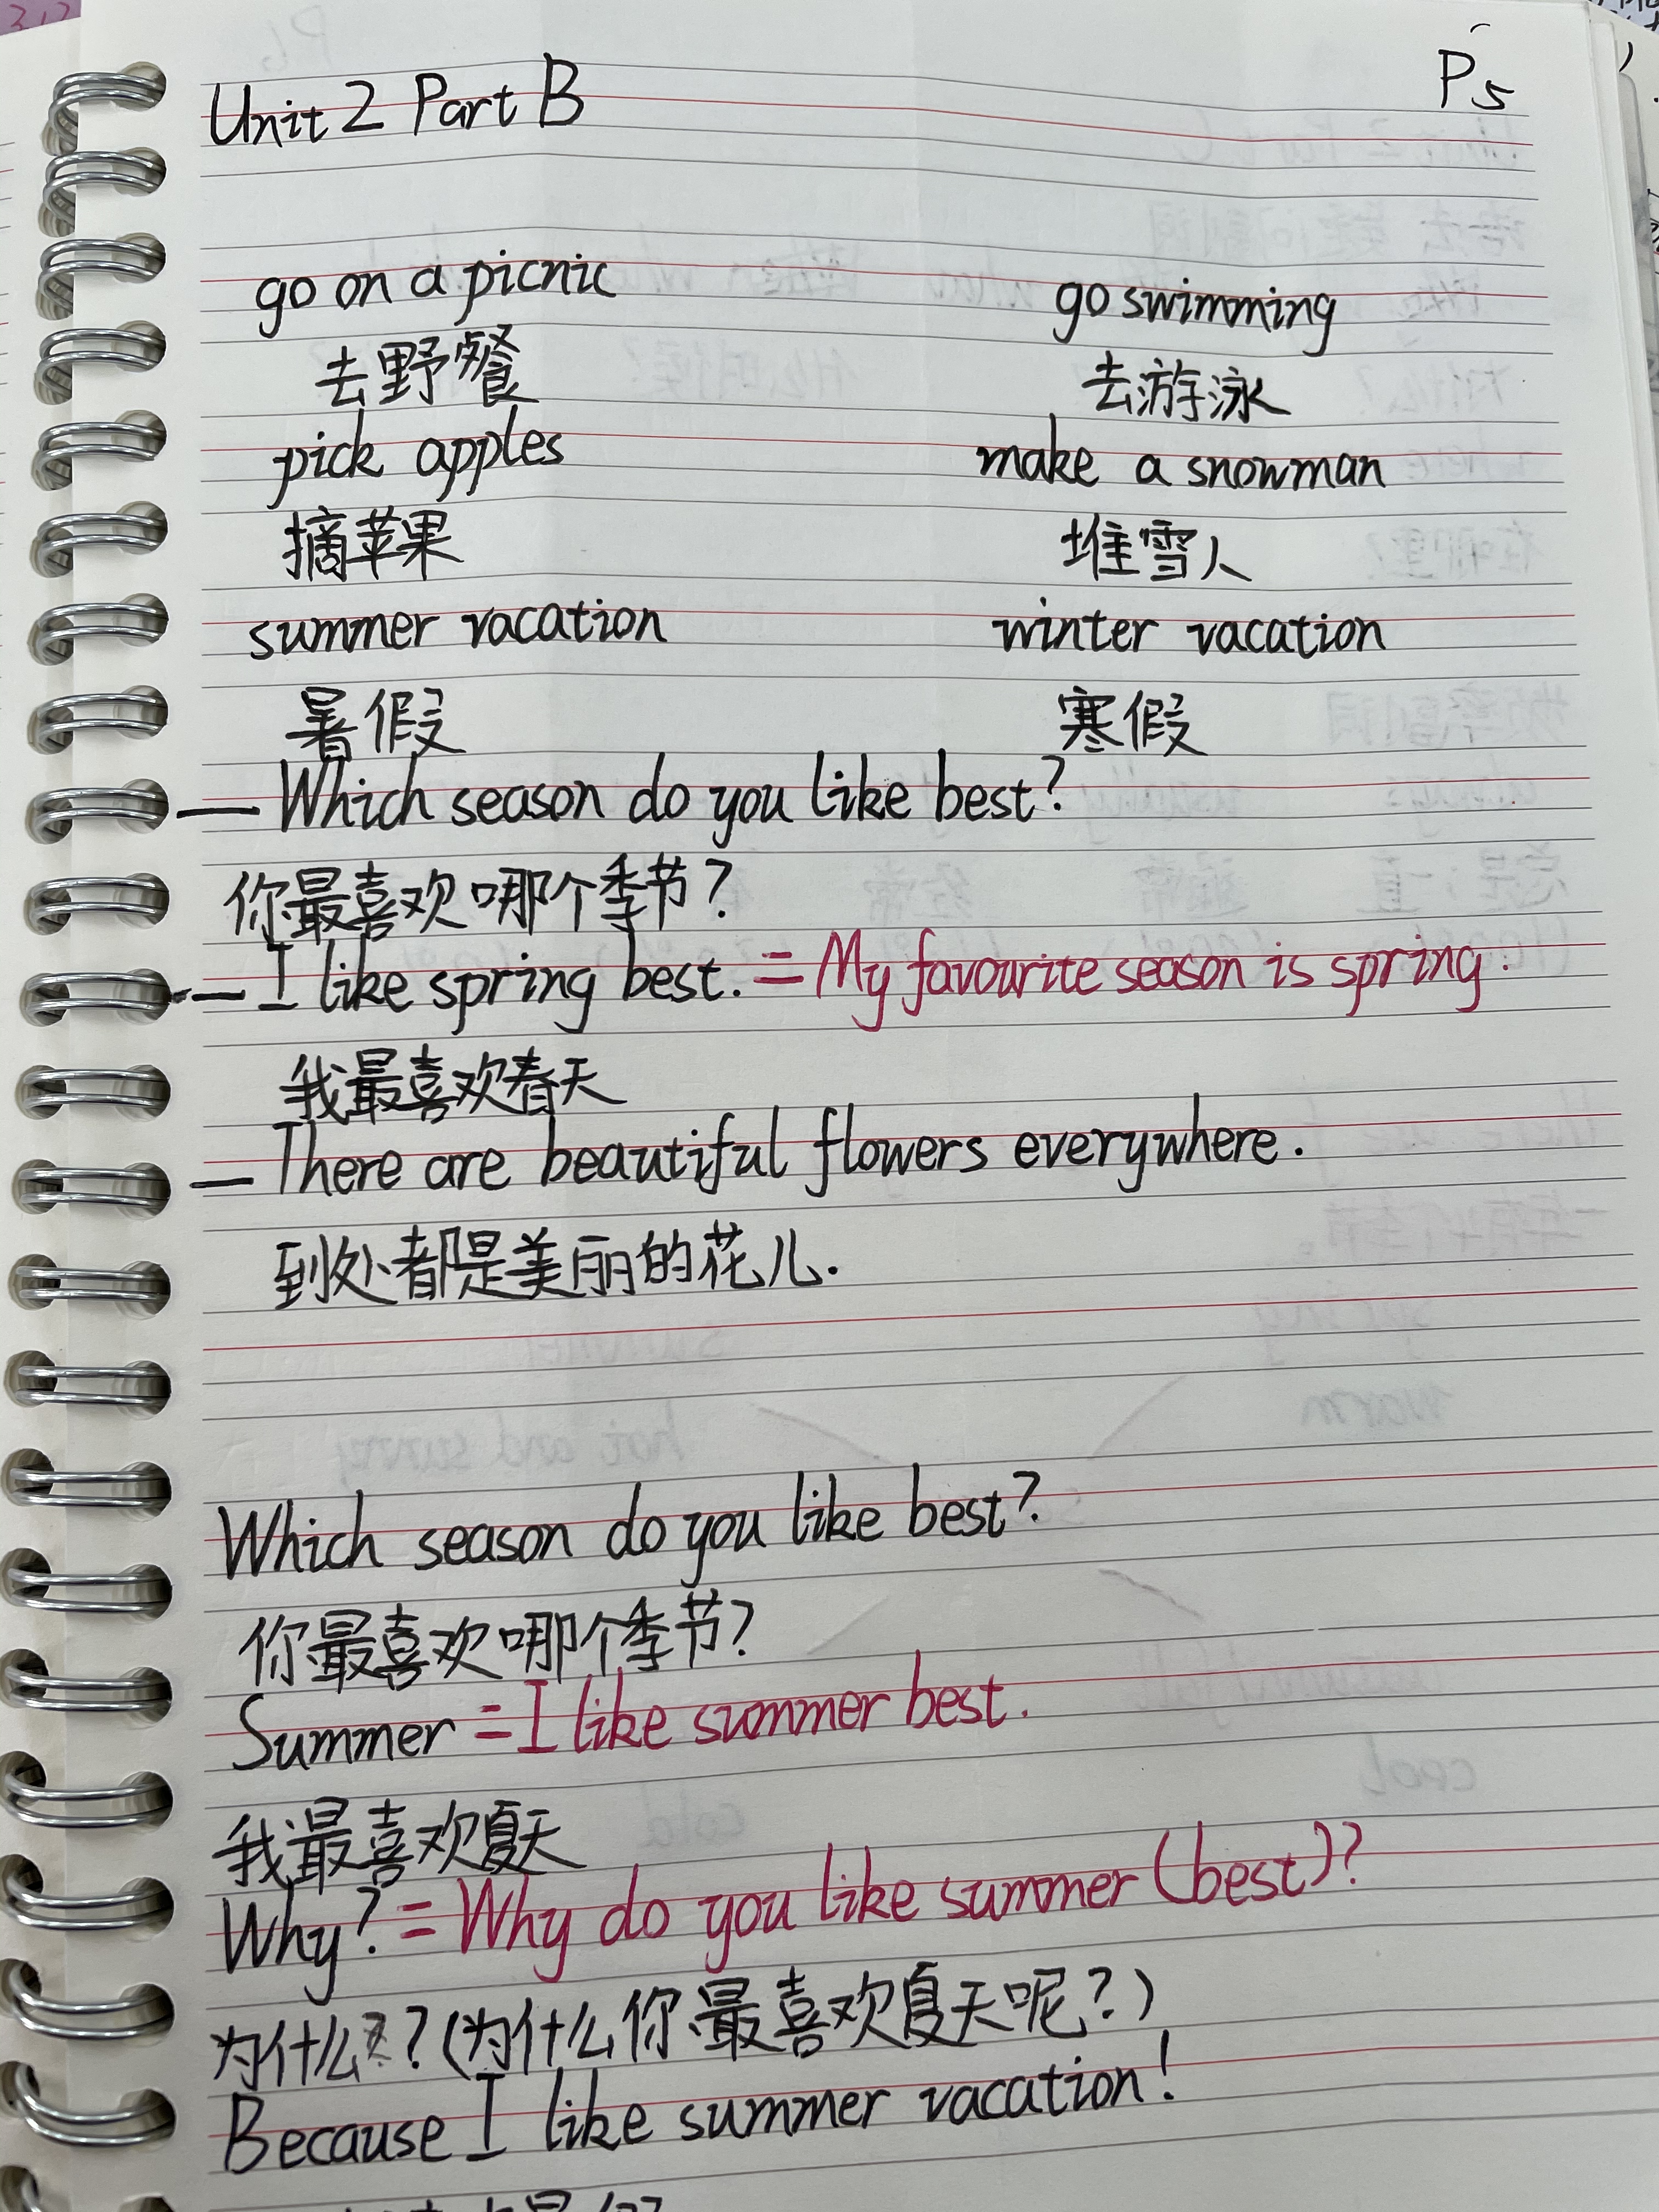 Unit 2 Part B P5
go on a picnic go swimming
去野餐 去游泳
pick apples make a snowman
摘苹果 堆雪人
summer vacation winter vacation
暑假 寒假
— Which season do you like best?
你最喜欢哪个季节?
— I like spring best. = My favourite season is spring.
我最喜欢春天
— There are beautiful flowers everywhere.
到处都是美丽的花儿.
Which season do you like best?
你最喜欢哪个季节?
Summer = I like summer best.
我最喜欢夏天
Why? = Why do you like summer (best)?
为什么?(为什么你最喜欢夏天呢?)
Because I like summer vacation!